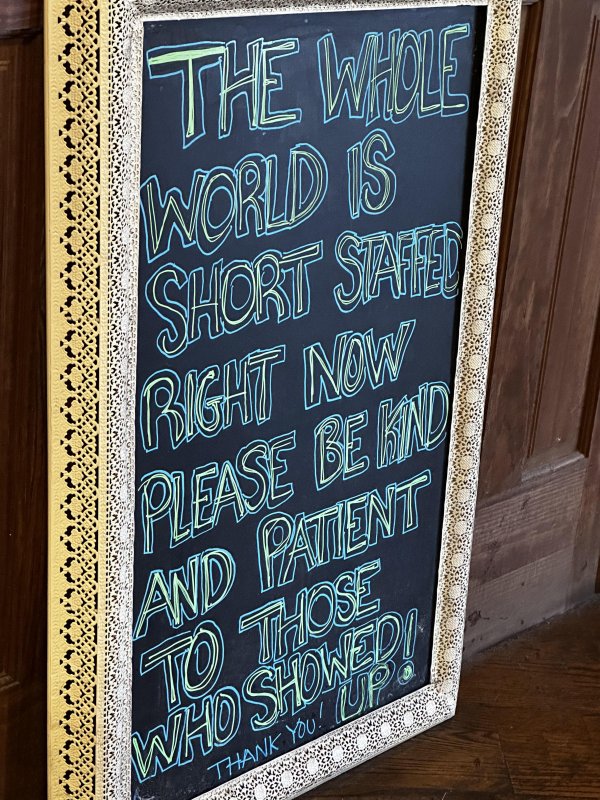 THE WHOLE
WORLD IS
SHORT STAFFED
RIGHT NOW
PLEASE BE KIND
AND PATIENT
TO THOSE
WHO SHOWED!
UP!
THANK YOU!